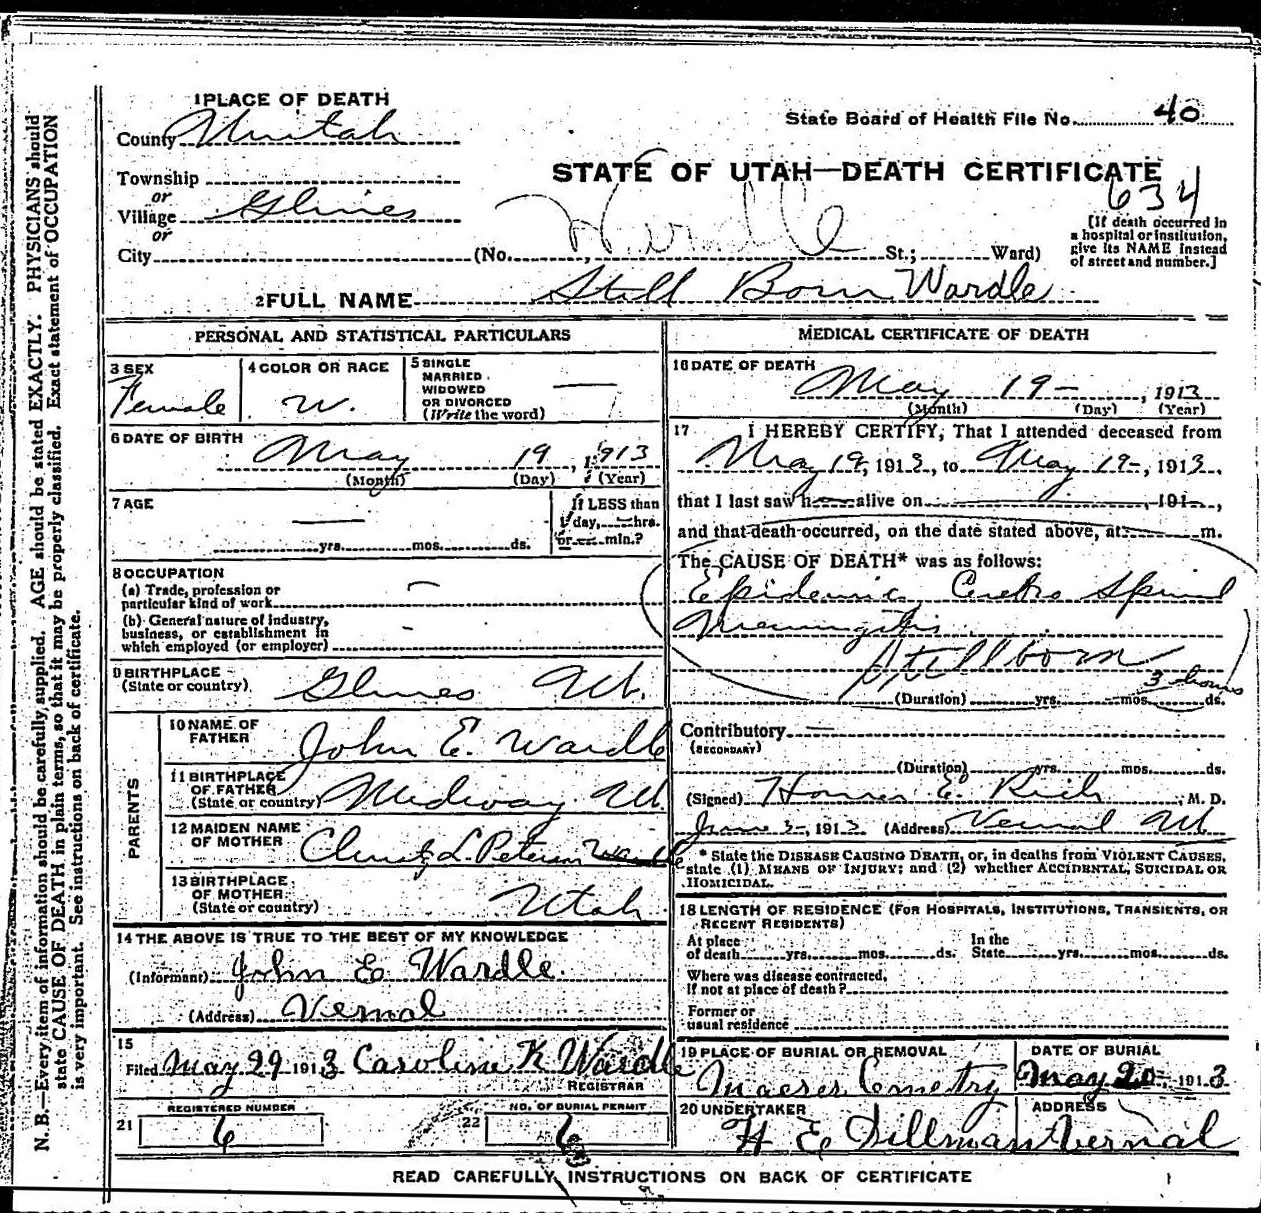 1 PLACE OF DEATH
County Uintah
State Board of Health File No. 40
Township
STATE OF UTAH—DEATH CERTIFICATE
634
or
Village Glines
or
City (No. , St.; Ward)
Wardle
[If death occurred in
a hospital or institution,
give its NAME instead
of street and number.]
2 FULL NAME Still Born Wardle
PERSONAL AND STATISTICAL PARTICULARS
3 SEX
Female
4 COLOR OR RACE
W.
5 SINGLE
MARRIED
WIDOWED
OR DIVORCED
(Write the word) —
6 DATE OF BIRTH
May 19, 1913
(Month) (Day) (Year)
7 AGE
—
yrs. mos. ds.
If LESS than
1 day, — hrs.
or — min.?
8 OCCUPATION
(a) Trade, profession or
particular kind of work —
(b) General nature of industry,
business, or establishment in
which employed (or employer) -
9 BIRTHPLACE
(State or country) Glines Ut.
PARENTS
10 NAME OF
FATHER John E. Wardle
11 BIRTHPLACE
OF FATHER
(State or country) Midway Ut
12 MAIDEN NAME
OF MOTHER L. Peterson Wardle
13 BIRTHPLACE
OF MOTHER
(State or country) Utah
14 THE ABOVE IS TRUE TO THE BEST OF MY KNOWLEDGE
(Informant) John E Wardle.
(Address) Vernal
15
Filed May 29 1913 Caroline K Wardle
REGISTRAR
REGISTERED NUMBER
21 6
NO. OF BURIAL PERMIT
22 6
MEDICAL CERTIFICATE OF DEATH
16 DATE OF DEATH
May 19 -, 1913
(Month) (Day) (Year)
17 I HEREBY CERTIFY, That I attended deceased from
May 19, 1913, to May 19-, 1913,
that I last saw h— alive on 191-,
and that death occurred, on the date stated above, at m.
The CAUSE OF DEATH* was as follows:
Epidemic Cerebro Spinal
Meningitis
Stillborn
3 hours
(Duration) yrs. mos. ds.
Contributory —
(SECONDARY)
(Duration) yrs. mos. ds.
(Signed) Homer E. Rich, M. D.
June 3-, 1913 (Address) Vernal Ut.
* State the DISEASE CAUSING DEATH, or, in deaths from VIOLENT CAUSES,
state (1) MEANS OF INJURY; and (2) whether ACCIDENTAL, SUICIDAL OR
HOMICIDAL.
18 LENGTH OF RESIDENCE (FOR HOSPITALS, INSTITUTIONS, TRANSIENTS, OR
RECENT RESIDENTS)
At place
of death yrs. mos. ds. In the
State yrs. mos. ds.
Where was disease contracted,
If not at place of death?
Former or
usual residence
19 PLACE OF BURIAL OR REMOVAL
Maeser Cemetry
DATE OF BURIAL
May 20-, 1913
20 UNDERTAKER
H E Dillman
ADDRESS
Vernal
READ CAREFULLY INSTRUCTIONS ON BACK OF CERTIFICATE
N. B.—Every item of information should be carefully supplied. AGE should be stated EXACTLY. PHYSICIANS should
state CAUSE OF DEATH in plain terms, so that it may be properly classified. Exact statement of OCCUPATION
is very important. See instructions on back of certificate.